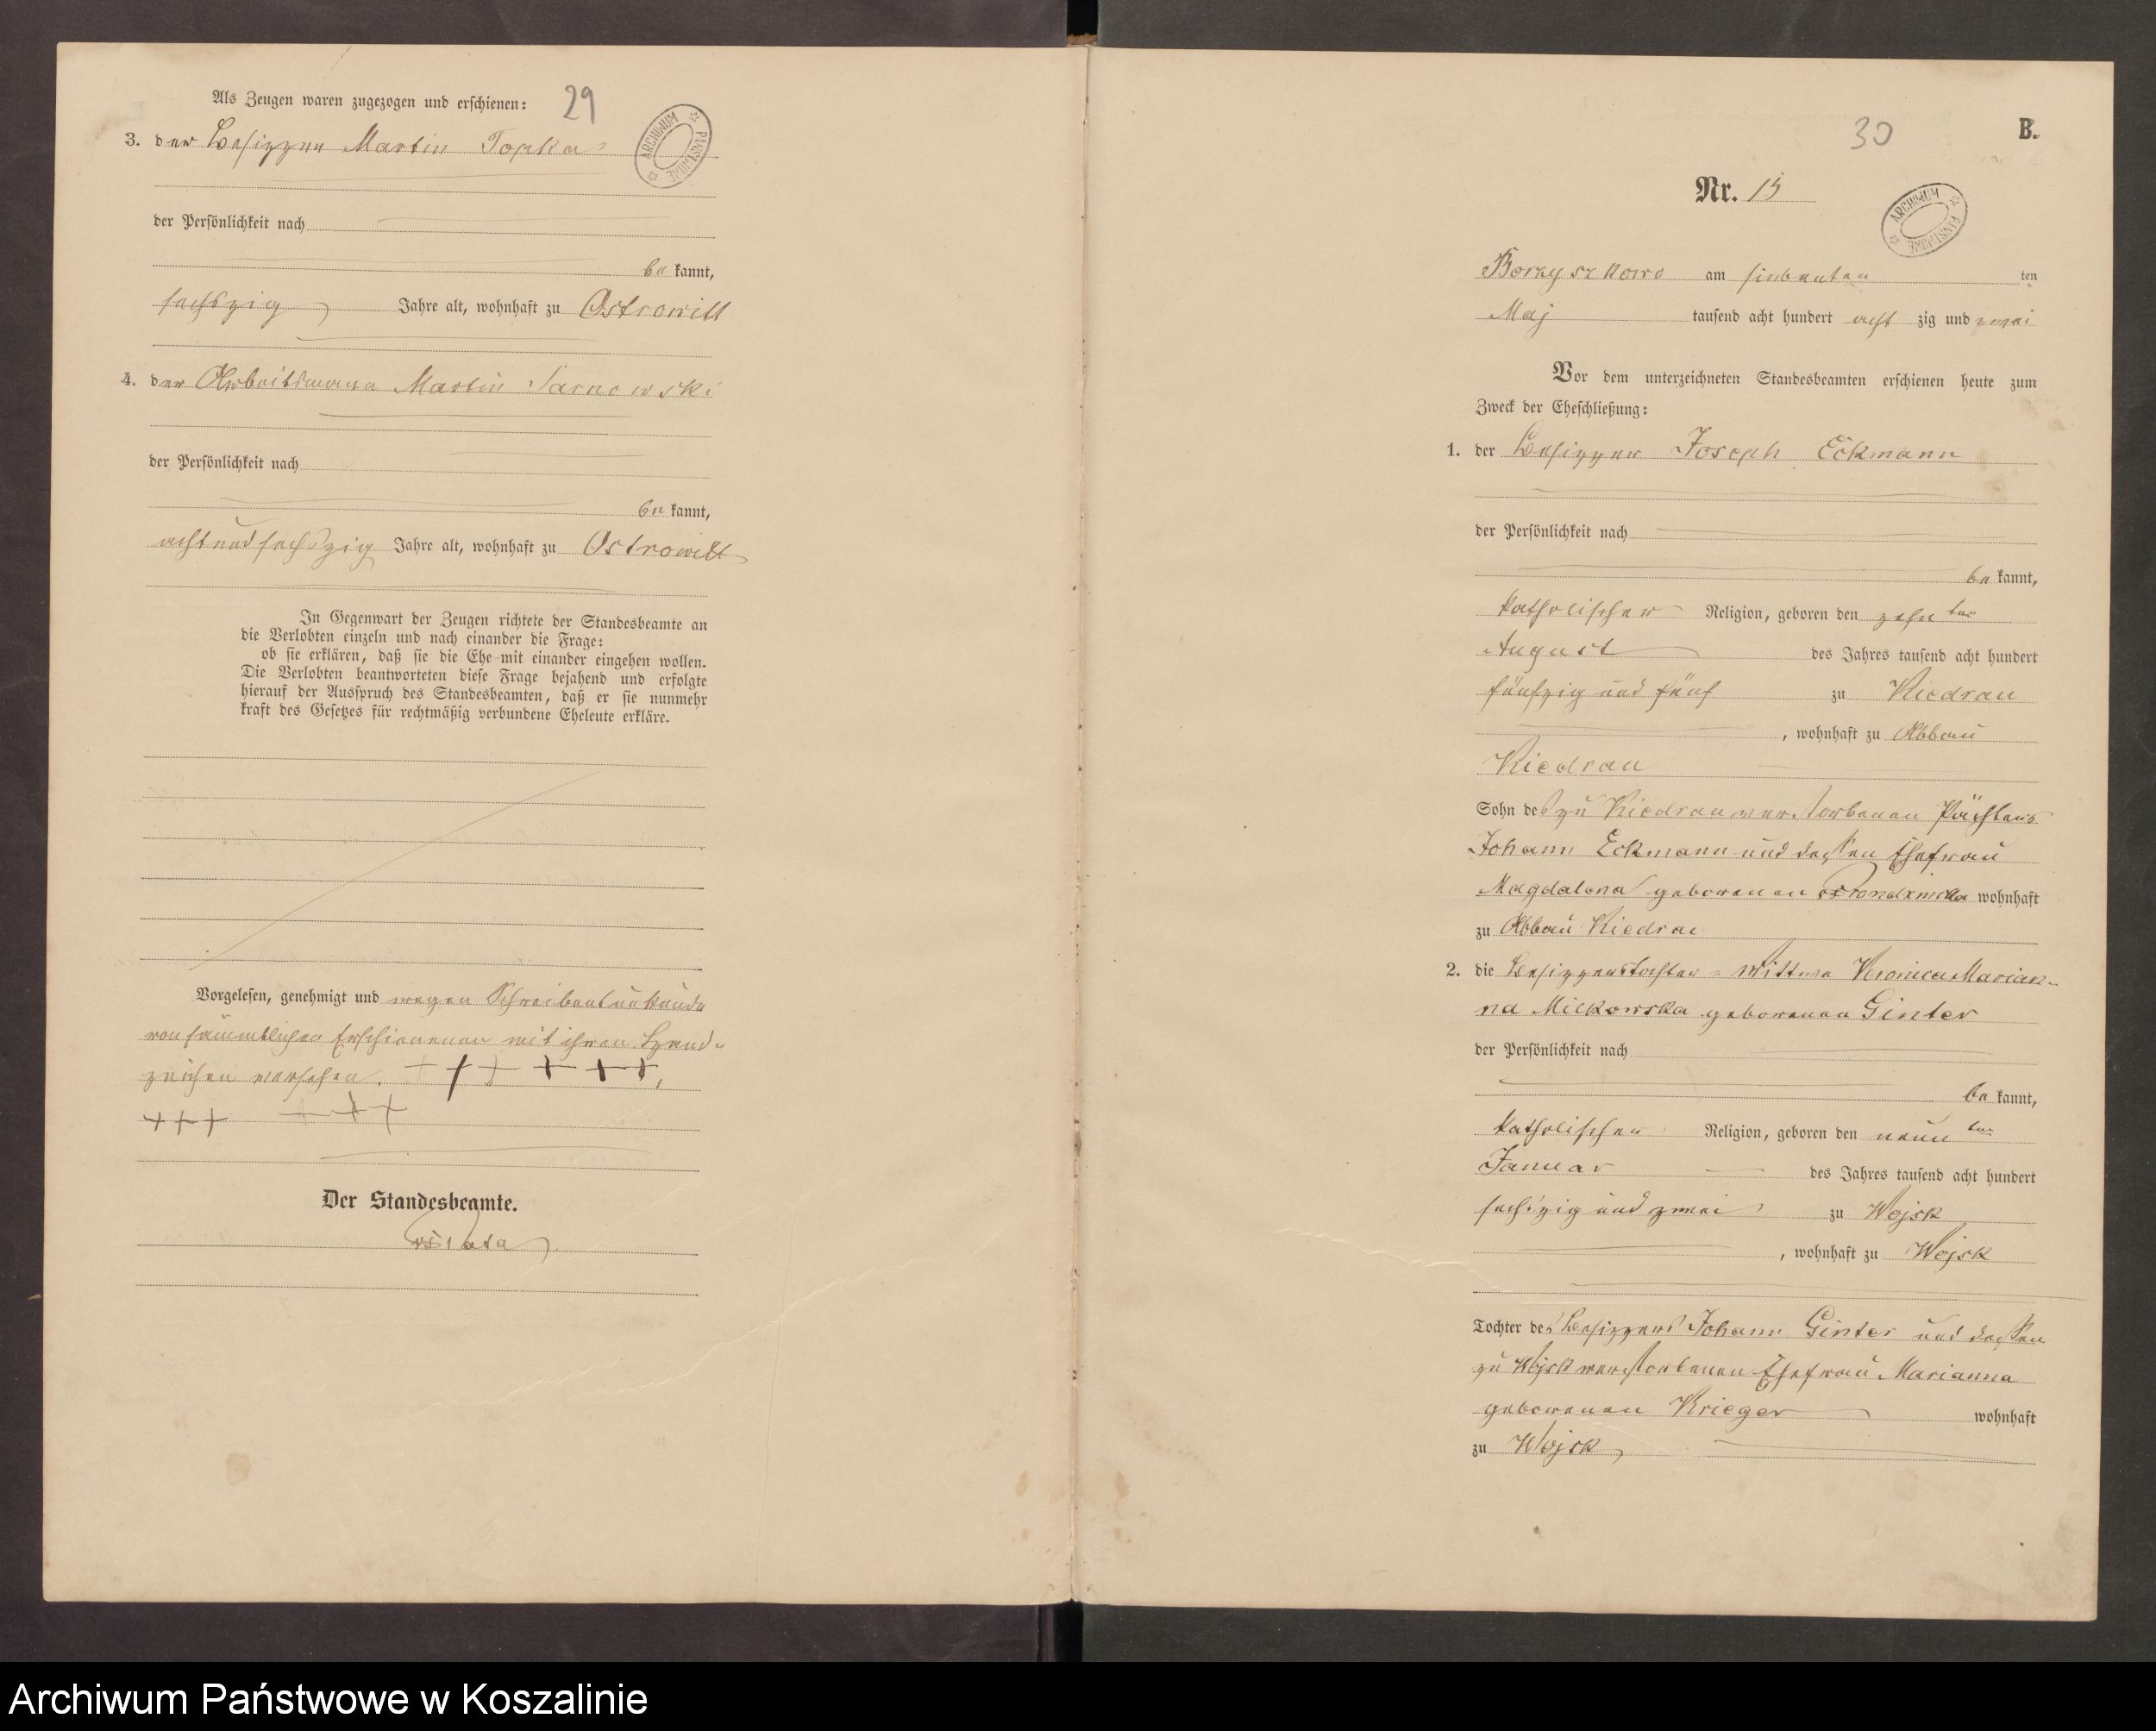 Als Zeugen waren zugezogen und erschienen:
29
3. der Besitzer Martin Topka
ARCHIWUM PAŃSTWOWE
der Persönlichkeit nach
be kannt,
sechszig Jahre alt, wohnhaft zu Ostrowitt
4. der Arbeitsmann Martin Sarnowski
der Persönlichkeit nach
be kannt,
achtundsechszig Jahre alt, wohnhaft zu Ostrowitt
In Gegenwart der Zeugen richtete der Standesbeamte an
die Verlobten einzeln und nach einander die Frage:
ob sie erklären, daß sie die Ehe mit einander eingehen wollen.
Die Verlobten beantworteten diese Frage bejahend und erfolgte
hierauf der Ausspruch des Standesbeamten, daß er sie nunmehr
kraft des Gesetzes für rechtmäßig verbundene Eheleute erkläre.
Vorgelesen, genehmigt und wegen Schreibensunkunde
von sämmtlichen Erschienenen mit ihren Hand-
zeichen versehen. +++ +++,
+++ +++
Der Standesbeamte.
30
B.
Nr. 15
ARCHIWUM PAŃSTWOWE
Borzyszkowo am siebenten ten
Maj tausend acht hundert acht zig und zwei
Vor dem unterzeichneten Standesbeamten erschienen heute zum
Zweck der Eheschließung:
1. der Besitzer Joseph Eckmann
der Persönlichkeit nach
be kannt,
katholischer Religion, geboren den zehn ten
August des Jahres tausend acht hundert
fünfzig und fünf zu Kiedrau
, wohnhaft zu Abbau
Kiedrau
Sohn des zu Kiedrau verstorbenen Pächters
Johann Eckmann und dessen Ehefrau
Magdalena geborenen wohnhaft
zu Abbau Kiedrau
2. die Besitzerstochter - Wittwe Veronica Marian-
na Milkowska geborenen Ginter
der Persönlichkeit nach
be kannt,
katholischer Religion, geboren den neun ten
Januar des Jahres tausend acht hundert
sechszig und zwei zu Wojsk
, wohnhaft zu Wojsk
Tochter des Besitzers Johann Ginter und dessen
zu Wojsk verstorbenen Ehefrau Marianna
geborenen Krieger wohnhaft
zu Wojsk
Archiwum Państwowe w Koszalinie